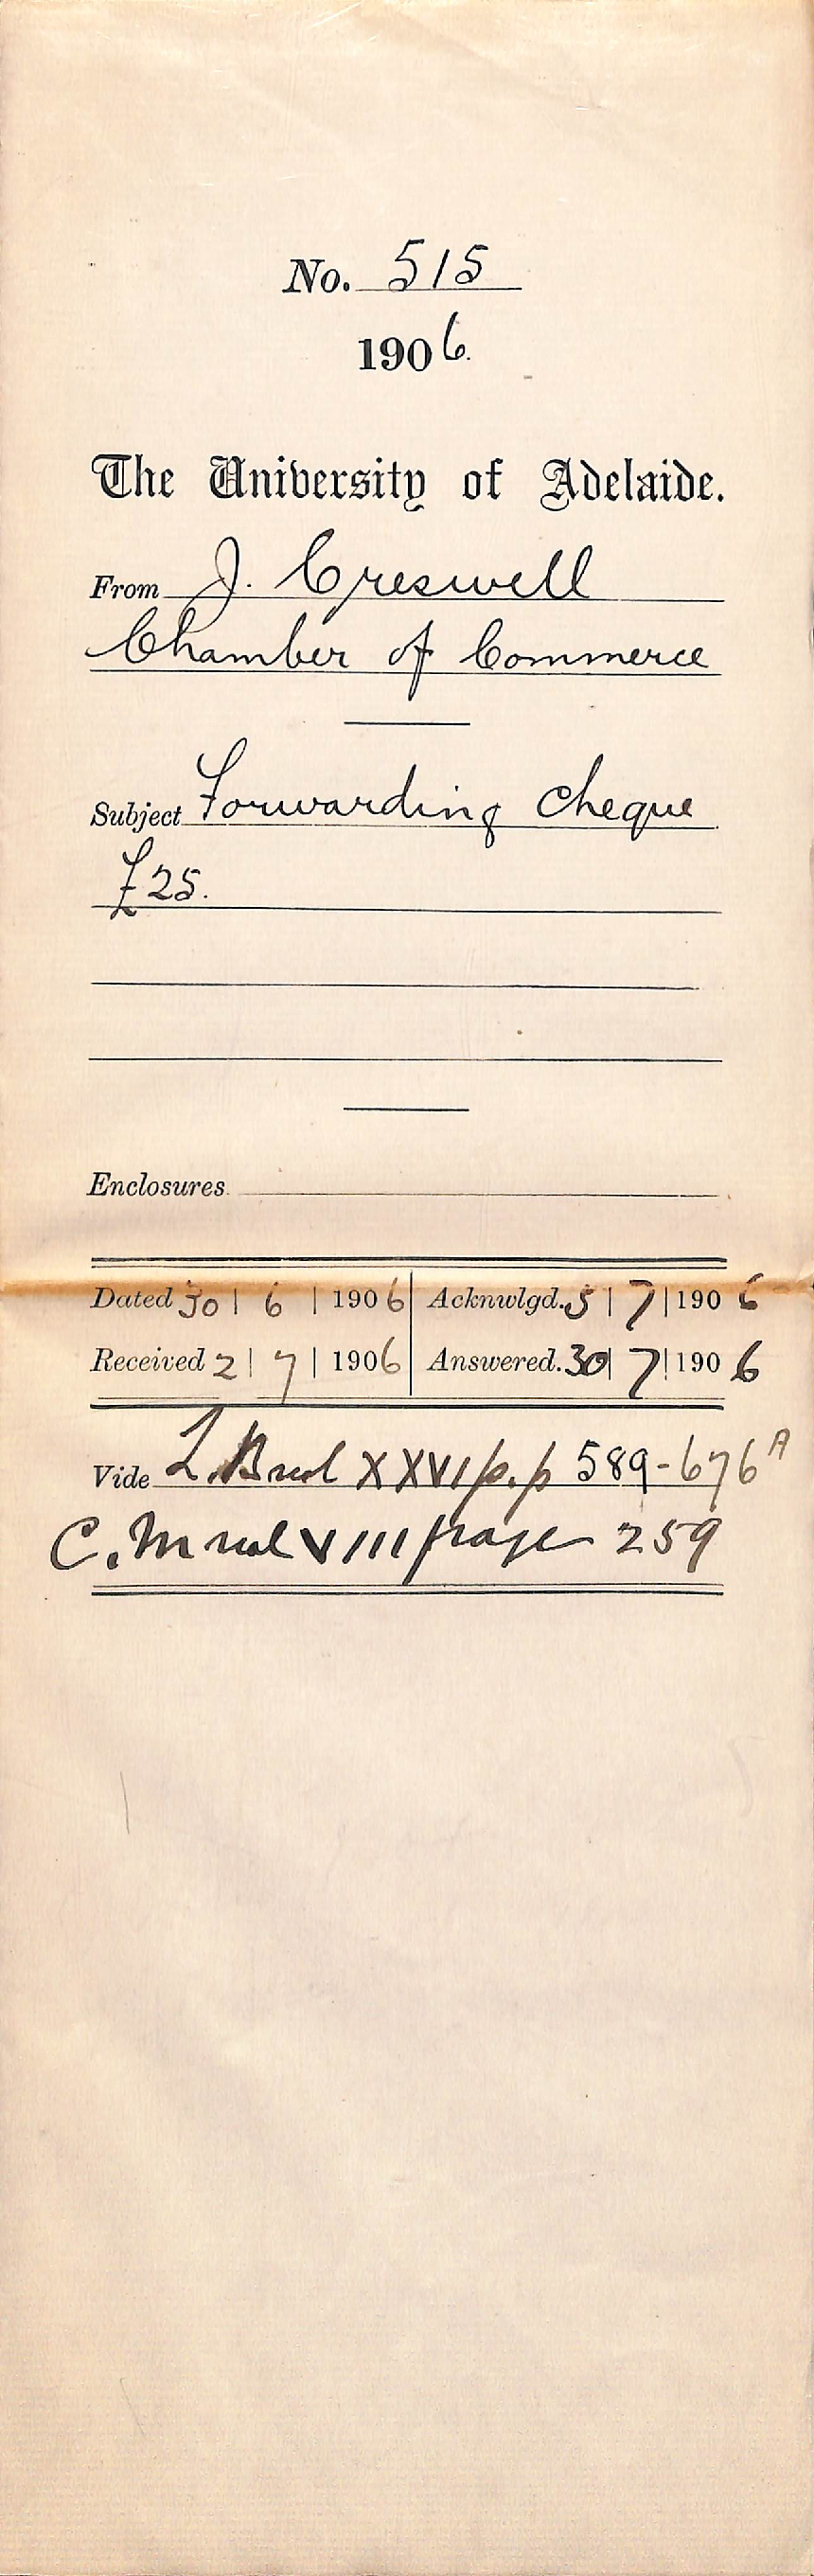 No. 515
1906.
The University of Adelaide.
From J. Creswell
Chamber of Commerce
Subject Forwarding Cheque
£25.
Enclosures
Dated 30 | 6 | 1906 Acknwlgd. 5 | 7 | 1906
Received 2 | 7 | 1906 Answered. 30 | 7 | 1906
Vide L.B vol XXVI p.p 589-676A
C.M vol VIII page 259